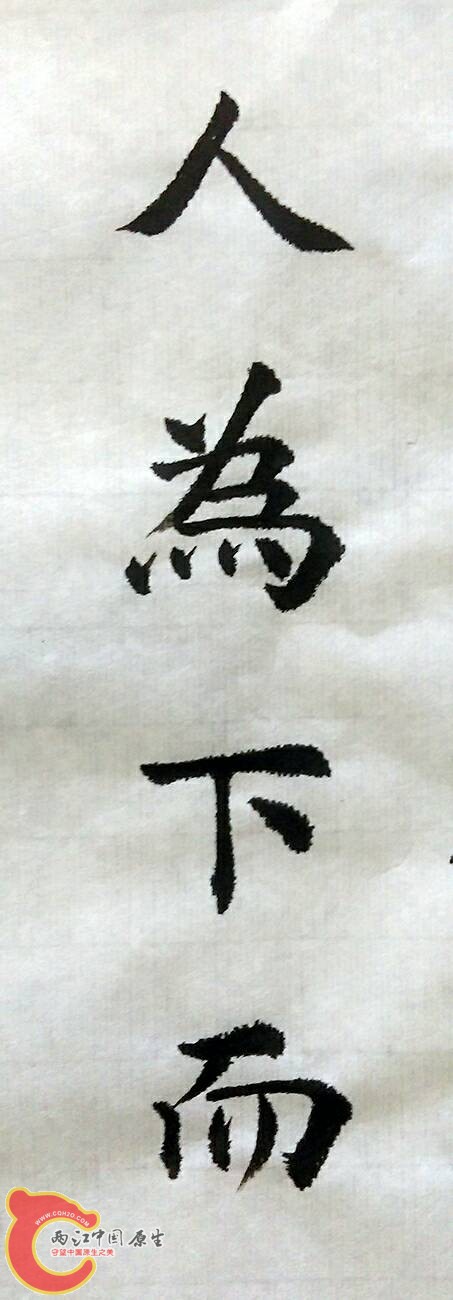 人為下而
WWW.CQH2O.COM
两江中国 原生
守望中国原生之美